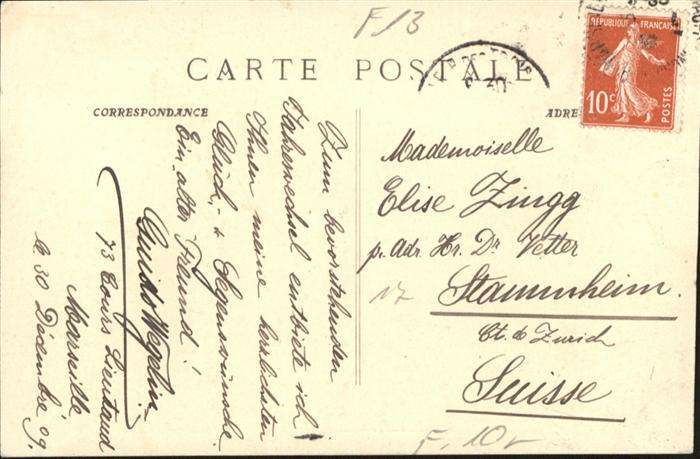 F/3
CARTE POSTALE
CORRESPONDANCE
ADRE
RÉPUBLIQUE FRANÇAISE
10c
POSTES
Zum bevorstehenden
Jahreswechsel entbiete ich
Ihnen meine herzlichsten
Glück- & Segenswünsche
Ein alter Freund!
Guido Wegelin.
73 Cours Lieutaud
Marseille
le 30 Décembre 09.
Mademoiselle
Elise Zingg
p. Adr. Hr. Dr. Vetter
Stammheim.
Ct. de Zurich
Suisse